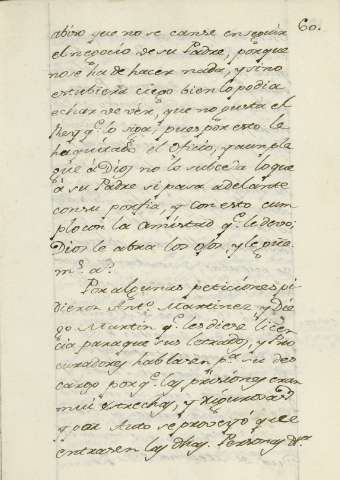 60.
abiso que no se canse en seguir
el negocio de su Padre, porque
no se ha de hacer nada, y si no
estubiera ciego bien lo podia
echar de ver, que no gusta el
Rey q.e lo siga, pues por esto le
ha quitado el oficio, y
que à Dios no le subceda lo que
à su Padre si pasa adelante
con su porfia, y con esto cum
plo con la amistad q.e le devo;
Dios le abra los ojos, y le gue
m.s a.s
Por algunas peticiones pi
dieron Ant.o Martinez y Die
go Martin q.e les diese licen
cia para que sus Letrados, y Pro
curadores hablasen p.a su des
cargo por q.e las prisiones eran
mui estrechas, y rigurosas
y por Auto se proveyó que
entrasen las dhas. Personas